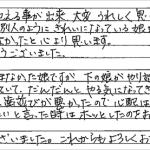 える事が出来 大変 うれしく 思
別人のように きれいになっている娘
なかったと心より思います。
うございました。
まなかった娘ですが 下の娘が
て、だんだんと やる気になってき
夜遊びが多かったので 心配
い」と言った時は ホッとしたのをお
ざいました。これからもよろしくお